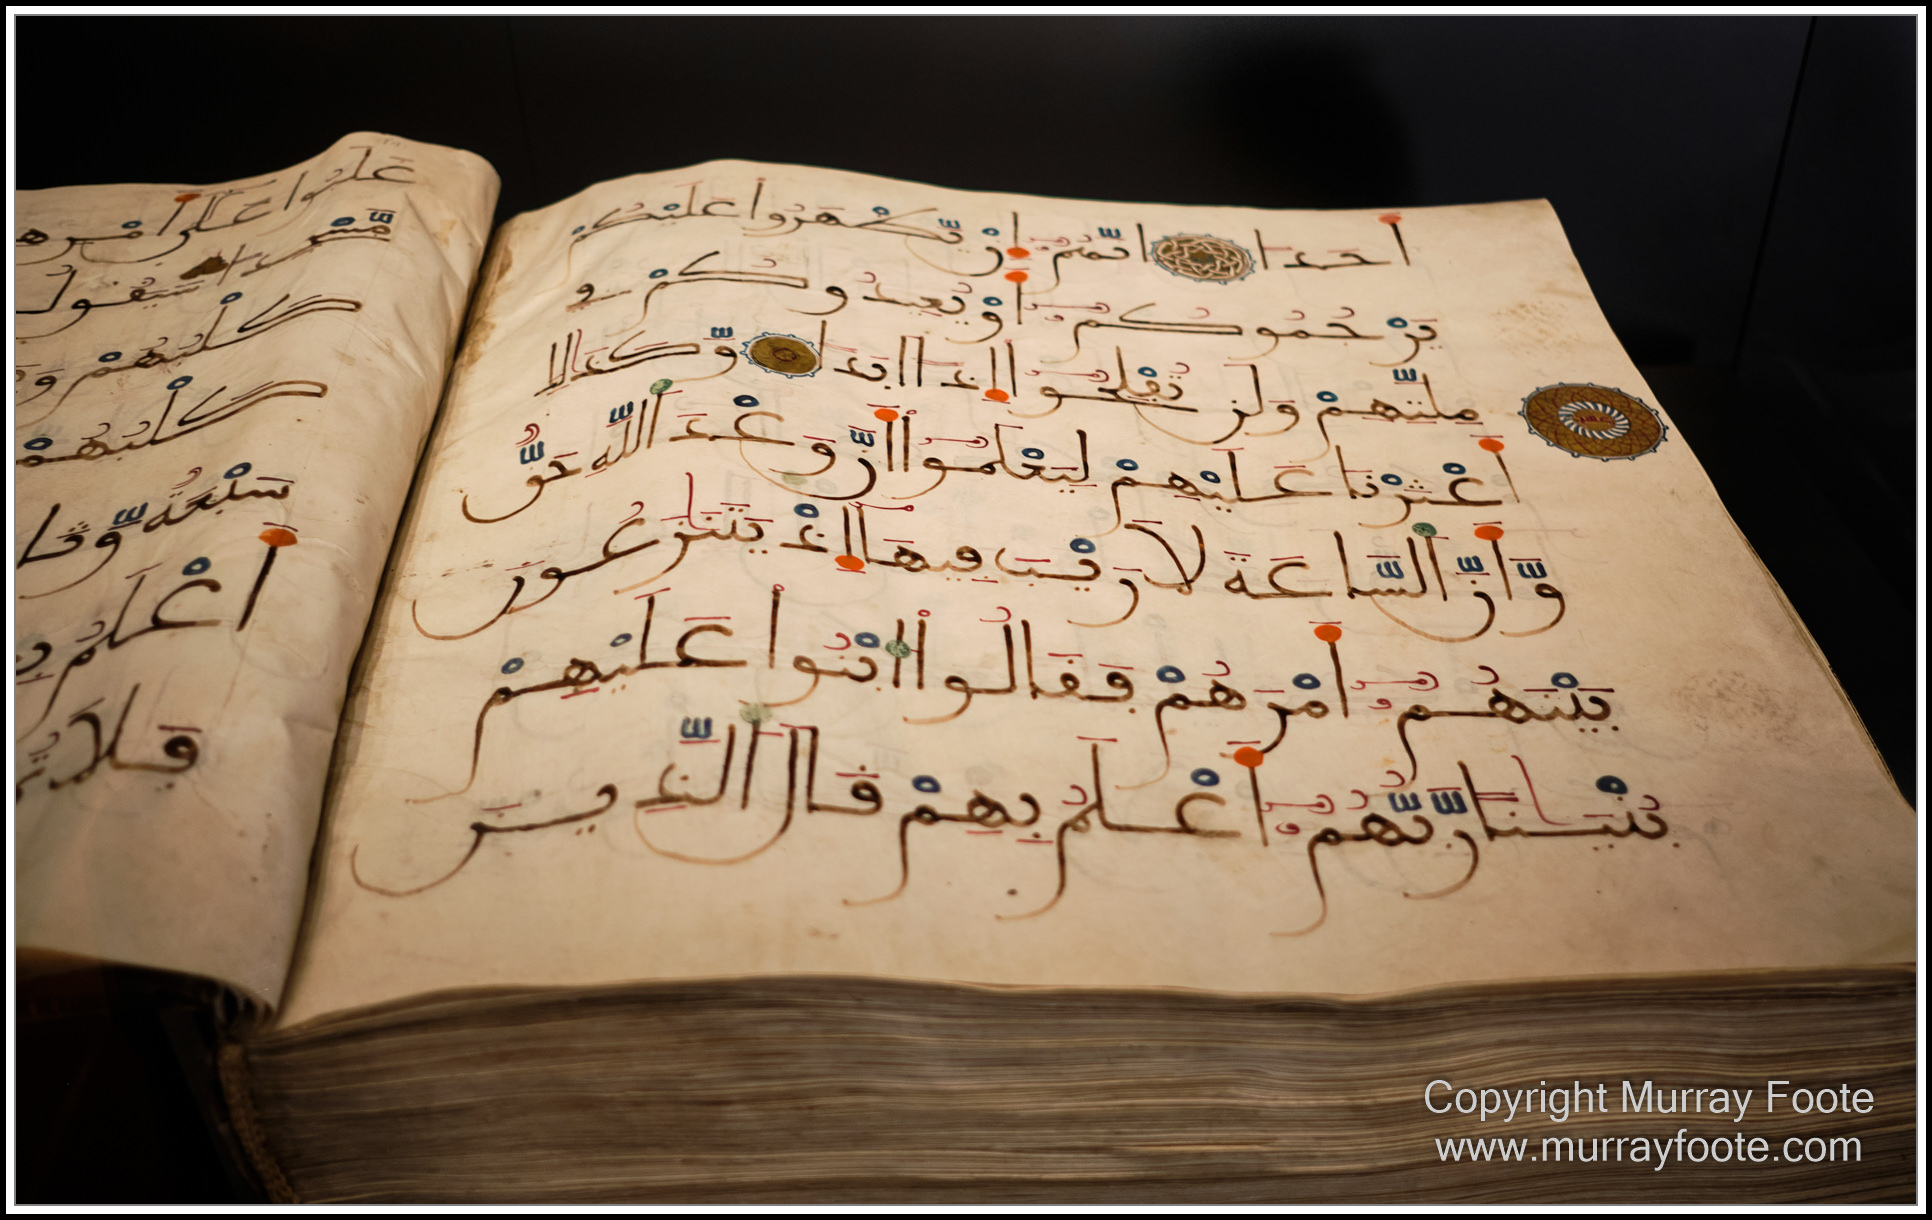 أَحَدًا إِنَّهُمُ إِنْ يَّظْهَرُوا عَلَيْكُمْ
يَرْجُمُوكُمُ أَوْ يُعِيدُوكُمْ فِي
مِلَّتِهِمْ وَلَن تُفْلِحُوا إِذًا أَبَدًا وَّكَذَلِكَ
أَعْثَرْنَا عَلَيْهِمْ لِيَعْلَمُوا أَنَّ وَعْدَ اللَّهِ حَقٌّ
وَّأَنَّ السَّاعَةَ لَا رَيْبَ فِيهَا إِذْ يَتَنَازَعُونَ
بَيْنَهُمُ أَمْرَهُمْ فَقَالُوا ابْنُوا عَلَيْهِمْ
بُنْيَانًا رَّبُّهُمُ أَعْلَمُ بِهِمْ قَالَ الَّذِينَ
غَلَبُوا عَلَى أَمْرِهِمْ
مَّسْجِدًا سَيَقُولُ
كَلْبُهُمْ وَ
كَلْبُهُمْ
سَبْعَةٌ وَّثَا
أَعْلَمُ بِ
فَلَا تُمَ
Copyright Murray Foote
www.murrayfoote.com